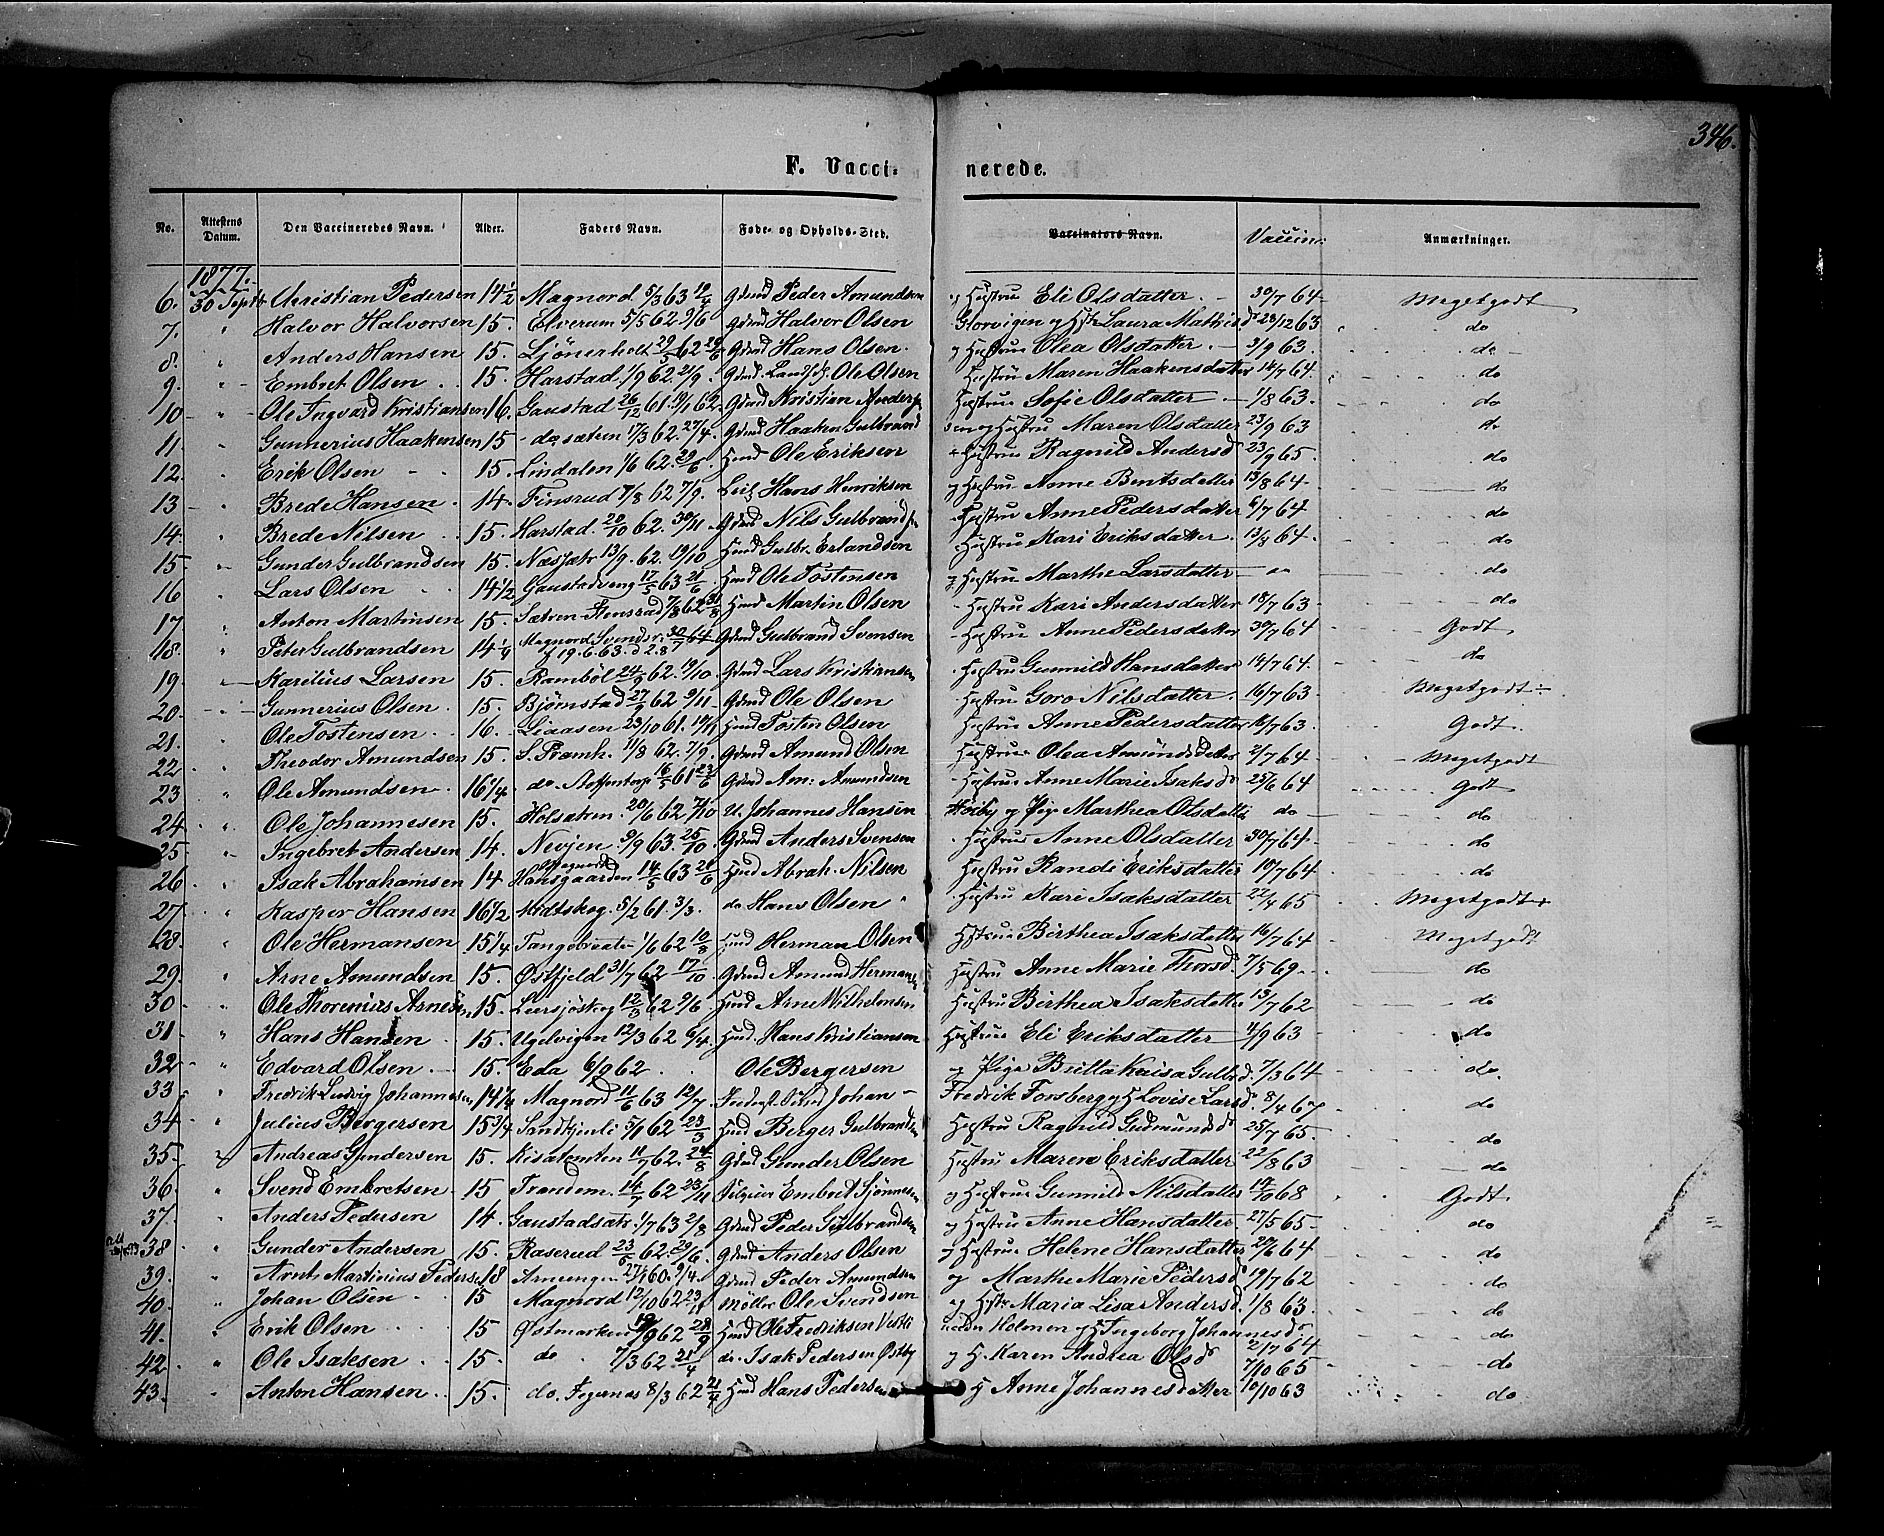 346.
F. Vaccinerede.
No. Attestens Datum. Den Vaccineredes Navn. Alder. Faders Navn. Føde- og Opholds-Sted. Vaccinators Navn. Vaccin: Anmærkninger.
1877.
6. 30 Septbr Christian Pedersen 14 1/2 Magnord 5/3 63 19/4 Gdmd Peder Amundsen og Hustru Eli Olsdatter 30/7 64 Meget godt
7. " Halvor Halvorsen 15. Elverum 5/5 62 9/6 Gdmd Halvor Olsen Storvigen og Laura Mathisd 28/12 63 do
8. " Anders Hansen 15. 29/5 62 29/6 Gdmd Hans Olsen. og Hustru Olea Olsdatter 3/9 63. do
9. " Embret Olsen 15. Harstad 1/9 62. 21/9. Gdmd. Ole Olsen Hustru Maren Haakensdatter 14/7 64. do
10 " Ole Ingvard Kristiansen 16. Gaustad 26/12 61. 19/1 62. Gdmd Kristian Hustru Sofie Olsdatter 1/8 63. do
11. " Gunnerius Haakensen 15 do sætern 17/3 62. 27/4. Gdmd Haaken Gulbrand sen og Hustru Maren Olsdatter 23/9 63 do
12. " Erik Olsen 15. Lindalen 1/6 62. 29/6. Hmd Ole Eriksen Hustru Ragnild Andersd 23/9 65. do
13 " Brede Hansen 14. Finsrud 7/8 62 7/9. Leil Hans Henriksen og Hustru Anne Berntsdatter 13/8 64. do
14. " Brede Nilsen 15. Harstad 20/10 62. 30/11 Gdmd Nils Gulbrands Hustru Anne Pedersdatter 6/7 64 do
15 " Gunder Gulbrandsen 15. 13/9. 62. 19/10 Hmd Gulbr. Erlandsen Hustru Kari Eriksdatter. 13/8 64. do
16 " Lars Olsen 14 1/2 Gaustadveng 17/5 63 21/6 Hmd Ole Tostensen og Hustru Marthe Larsdatter do
17 " Anton Martinsen 15. Sætren Finsrud 7/8 62 31/8 Hmd Martin Olsen Hustru Kari Andersdatter 18/7 63 do
18. " Peter Gulbrandsen 14 1/4 Magnord Svendsr. 30/7 64 f 19.6.63. d 2.8 Gdmd Gulbrand Svensen Hustru Anne Pedersdatter 30/7 64 Godt
19. " Karelius Larsen 15. Rambøl 24/9 62 19/10 Gdmd Lars Kristiansen Hustru Gunnild Hansdatter 14/7 64. do
20. " Gunnerius Olsen 15. Bjørnstad 27/9 62 9/11 Gdmd Ole Olsen Hustru Goro Nilsdatter. 16/7 63. Meget godt
21. " Ole Tostensen 16. Liaasen 23/10 61. 17/11 Hmd Tosten Olsen Hustru Anne Pedersdatter 16/7 63. Godt.
22 " Theodor Amundsen 15. S. Pramh. 11/8 62. 7/9. Gdmd Amund Olsen Hustru Olea Amundsdatter 2/7 64 Meget godt
23 " Ole Amundsen. 16 1/4 do 16/5 61 23/6 Gdmd Am: Amundsen Hustru Anne Marie Isaksd 25/6 64 Godt
24 " Ole Johannesen 15. Holsætren. 20/6 62 7/10 U. Johannes Hansen og Pige Marthea Olsdatter do do
25 " Ingebret Andersen 14. Nevjen 9/9 63. 25/10 Gdmd Anders Svensen Hustru Anne Olsdatter 30/7 64 do
26 " Isak Abrahamsen 14 Magnord Hansgaarden 14/5 63 21/6 Hmd Abrah. Nilsen Hustru Randi Eriksdatter 10/7 64 do
27 " Kasper Hansen 16 1/2 Midtskog. 5/2 61. 3/3. do Hans Olsen Hustru Kari Isaksdatter 22/4 65 Meget godt
28 " Ole Hermansen 15 1/4 1/6 62 10/8 Hmd Herman Olsen Hustru Birthea Isaksdatter 16/7 64 Meget godt
29 " Arne Amundsen 15. Østfjeld 31/7 62 17/10 Gdmd Amund Hermans Hustru Anne Marie Thorsd 7/5 69 do
30 " Ole Thorenius Arnesen 15. Leersjøskog 12/3 62 9/6 Hmd Arne Wilhelmsen Hustru Birthea Isaksdatter 13/7 62 do
31 " Hans Hansen 15. Ugelvigen 12/3 62 6/4. Hmd. Hans Kristiansen Hustru Eli Eriksdatter 4/9 63 do
32 " Edvard Olsen 15. Eda 6/9 62 Ole Bergersen og Pige Britta Kaisa Gulbd. 7/3 64 do.
33 " Fredrik Ludvig Johannesen 14 1/4 Magnord 11/6 63 12/7. Johan Fredrik Forsberg og H Lovise Larsd. 8/4 67 do
34 " Julius Bergersen 15 3/4 5/1 62 23/3 Hmd Berger Gulbrandsen Hustru Ragnild Gudmundsd 25/7 65. do
35. " Andreas Gundersen 15. 11/7 62. 24/8 Gdmd Gunder Olsen Hustru Maren Eriksdatter 22/8 63 do
36 " Svend Embretsen 15 Trandem. 14/9 62 23/11 Embret og Hustru Gunnild Nilsdatter 17/10 68 Godt
37. " Anders Pedersen 14. Gaustadsætr. 1/7 63 2/8 Gdmd Peder Gulbrandsen og Hustru Anne Hansdatter 27/5 65. do
38 " Gunder Andersen 15. Raserud 23/5 62. 29/6. Gdmd Anders Olsen og Hustru Helene Hansdatter 20/6 64 do
39. " Arnt Martinius Peders. 18 27/1 60. 9/4. Gdmd Peder Amundsen og Marthe Marie Pedersd 19/7 62 do
40. " Johan Olsen 15 Magnord 12/10 62 23/11 Møller Ole Svendsen og Hstr Maria Lisa Andersd. 1/8 63. do
41. " Erik Olsen 15 Østmarken 19/9 62 28/9 Hmd Ole Fredriksen Holmen og H Ingeborg Johannesd do
42 " Ole Isaksen 15. do 7/3 62. 21/4 do. Isak Pedersen Østby og H. Karen Andrea Olsd 2/7 64 7/10 65 do
43. " Anton Hansen 15. do. 8/3 62 21/4 Hmd Hans Pedersen H Anne Johannesdatter 10/10 63 do